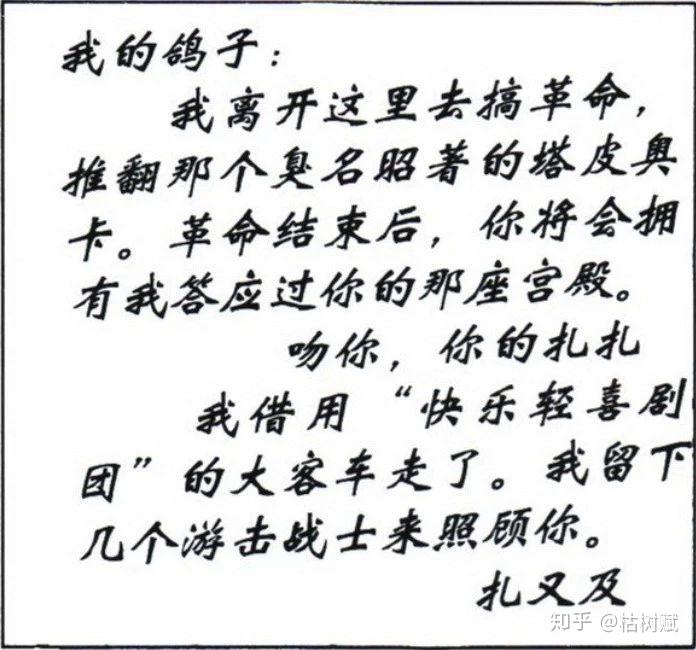 我的鸽子：
我离开这里去搞革命，
推翻那个臭名昭著的塔皮奥
卡。革命结束后，你将会拥
有我答应过你的那座宫殿。
吻你，你的扎扎
我借用“快乐轻喜剧
团”的大客车走了。我留下
几个游击战士来照顾你。
扎又及
知乎 @枯树赋